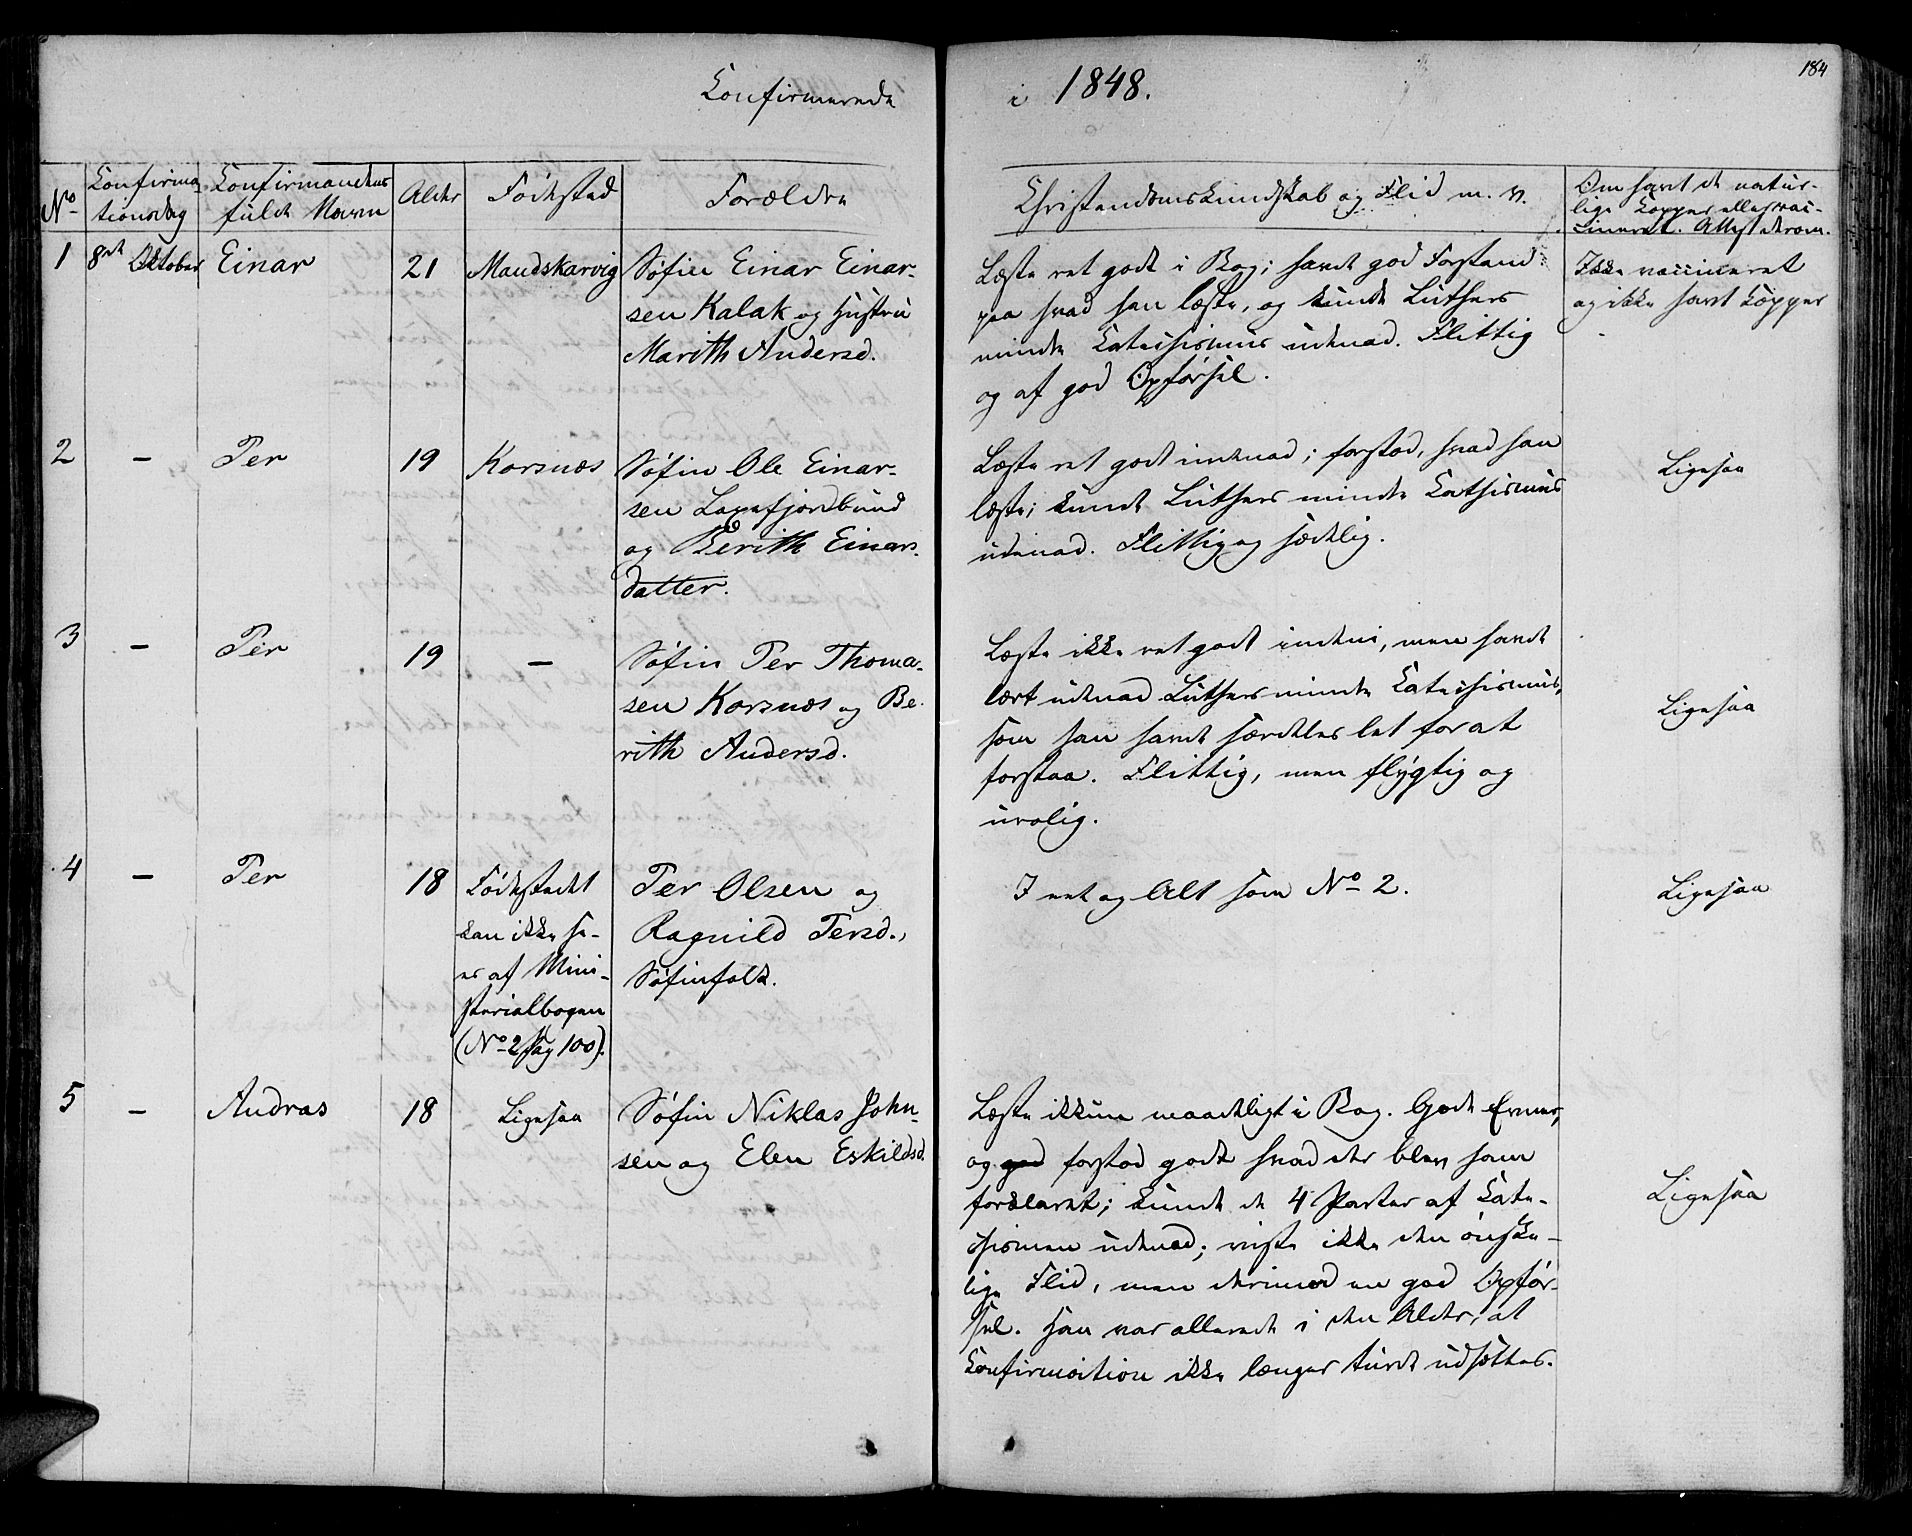 184
Confirmerede i 1848.
No
Confirma-
tionsdag
Confirmandens
fulde Navn
Alder
Fødested
Forældre
Christendomskundskab og Flid m. v.
Om havt de natur-
lige Kopper eller vac-
cineret. Attest derom.
1
8de Oktober
Einar
21
Mandskarvig
Søfin Einar Einar-
sen Kalak og Hustru
Marith Andersd.
Læste ret godt i Bog; havde god Forstand
paa hvad han læste, og kunde Luthers
mindre Catechismus udenad. Flittig
og af god Opførsel.
Ikke vaccineret
og ikke havt Kopper
2
–
Per
19
Korsnæs
Søfin Ole Einar-
sen Laxefjordbund
og Berith Einars-
datter.
Læste ret godt indenad; forstod, hvad han
læste; kunde Luthers mindre Cathismus
udenad. Flittig og sædelig.
Ligesaa
3
–
Per
19
–
Søfin Per Thoma-
sen Korsnæs og Be-
rith Andersd.
Læste ikke ret godt indeni, men havde
lært udenad Luthers mindre Catechismus,
som han havde særdeles let for at
forstaa. Flittig, men flygtig og
urolig.
Ligesaa
4
–
Per
18
Fødestedet
kan ikke se-
es af Mini-
sterialbogen
(No 2 Pag 100).
Per Olsen og
Ragnild Persd.,
Søfinfolk.
I eet og Alt som No 2.
Ligesaa
5
–
Andras
18
Ligesaa
Søfin Niklas John-
sen og Elen Eskildsd.
Læste ikkun maadeligt i Bog. Gode Evner,
og god forstod godt hvad der blev ham
forklaret; kunde de 4 Parter af Cate-
chismen udenad; viste ikke den ønske-
lige Flid, men derimod en god Opfør-
sel. Han var allerede i den Alder, at
Confirmation ikke længer turde udsættes.
Ligesaa